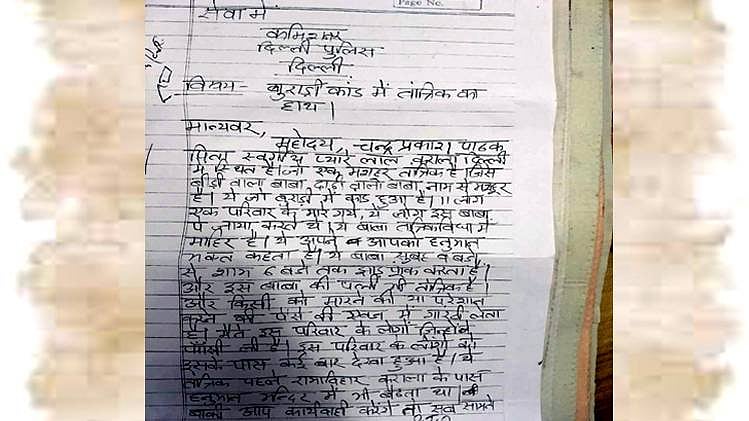 Page No.
सेवा में
कमिश्नर
दिल्ली पुलिस
दिल्ली
विषय- बुराड़ी कांड में तांत्रिक का
हाथ।
मान्यवर,
महोदय, चन्द्र प्रकाश पाठक
पिता स्वर्गीय प्यारे लाल कराला दिल्ली
में स्थित है। जो एक मशहूर तांत्रिक है। जिसे
बीड़ी वाला बाबा, दाढ़ी वाला बाबा, नाम से मशहूर
है। ये जो बुराड़ी में कांड हुआ है। 11 लोग
एक परिवार के मारे गये, ये लोग इस बाबा
पे जाया करते थे। ये बाबा तांत्रिकविधा में
माहिर है। ये अपने आपको हनुमान
भक्त कहता है। ये बाबा सुबह 9 बजे
से शाम 6 बजे तक झाड़ फूंक करता है।
और इस बाबा की पत्नी भी तांत्रिक है।
और किसी को मारने की या परेशान
करने की पैसे की एवज में गारंटी लेता
है। मैंने इस परिवार के लोगों जिन्होंने
फाँसी ली है। इस परिवार के लोगों को
इसके पास कई बार देखा हुआ है। ये
तांत्रिक पहले रामाविहार कराला के पास
हनुमान मन्दिर में भी बैठता था।
बाकी आप कार्यवाही करेंगे तो सब सामने